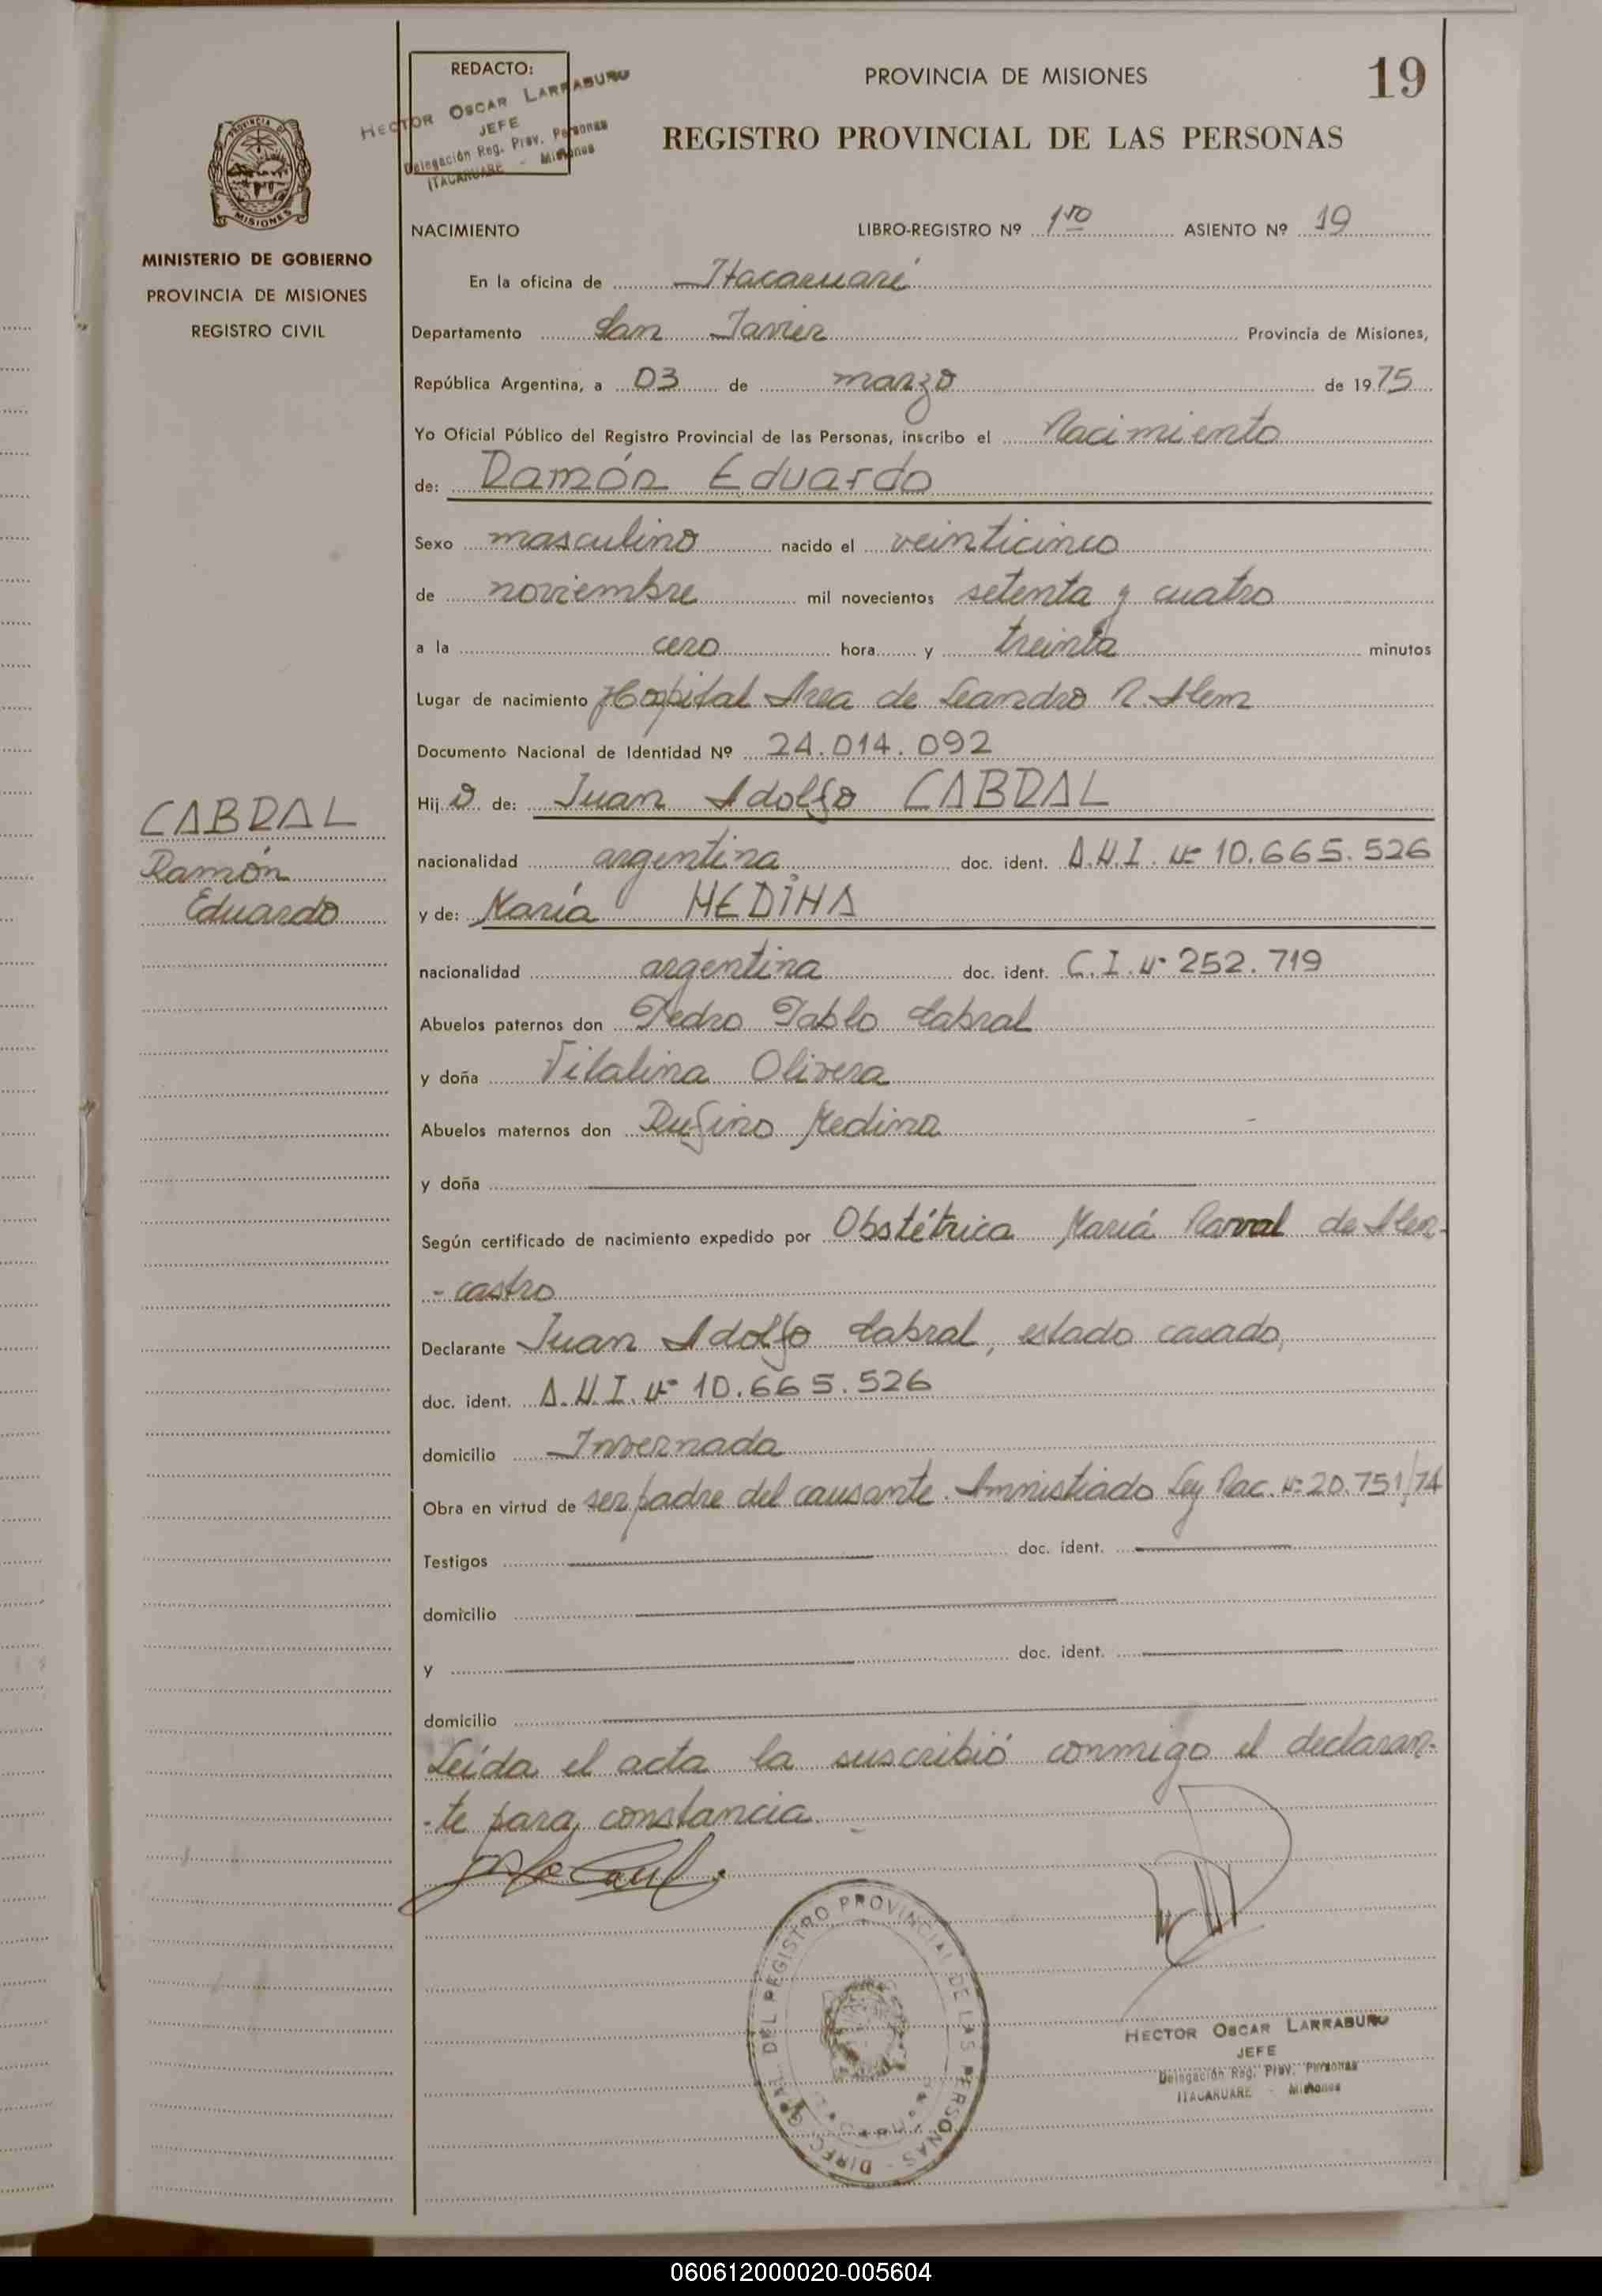 19
REDACTO:
HECTOR OSCAR LARRABURU
JEFE
Delegación Reg. Prov. Personas
ITACARUARE - Misiones
PROVINCIA DE MISIONES
REGISTRO PROVINCIAL DE LAS PERSONAS
PROVINCIA DE
MISIONES
MINISTERIO DE GOBIERNO
PROVINCIA DE MISIONES
REGISTRO CIVIL
NACIMIENTO LIBRO-REGISTRO Nº 1ro ASIENTO Nº 19
En la oficina de Itacaruaré
Departamento San Javier Provincia de Misiones,
República Argentina, a 03 de marzo de 1975
Yo Oficial Público del Registro Provincial de las Personas, inscribo el Nacimiento
de: Ramón Eduardo
Sexo masculino nacido el veinticinco
de noviembre mil novecientos setenta y cuatro
a la cero hora y treinta minutos
Lugar de nacimiento Hospital Area de Leandro N. Alem
Documento Nacional de Identidad Nº 24.014.092
CABRAL
Ramón
Eduardo
Hijo de: Juan Adolfo CABRAL
nacionalidad argentina doc. ident. D.N.I. Nº 10.665.526
y de: María MEDINA
nacionalidad argentina doc. ident. C.I. Nº 252.719
Abuelos paternos don Pedro Pablo Cabral
y doña Vitalina Olivera
Abuelos maternos don Rufino Medina
y doña
Según certificado de nacimiento expedido por Obstétrica Mariá de Alen-
-castro
Declarante Juan Adolfo Cabral, estado casado,
doc. ident. D.N.I. Nº 10.665.526
domicilio Invernada
Obra en virtud de ser padre del causante. Amnistiado Ley Nac. Nº 20.751/74
Testigos doc. ident.
domicilio
y doc. ident.
domicilio
Leída el acta la suscribió conmigo el declaran-
-te para constancia
DIREC. GRAL. DEL REGISTRO PROVINCIAL DE LAS PERSONAS
HECTOR OSCAR LARRABURU
JEFE
Delegación Reg. Prov. Personas
ITACARUARE - Misiones
060612000020-005604